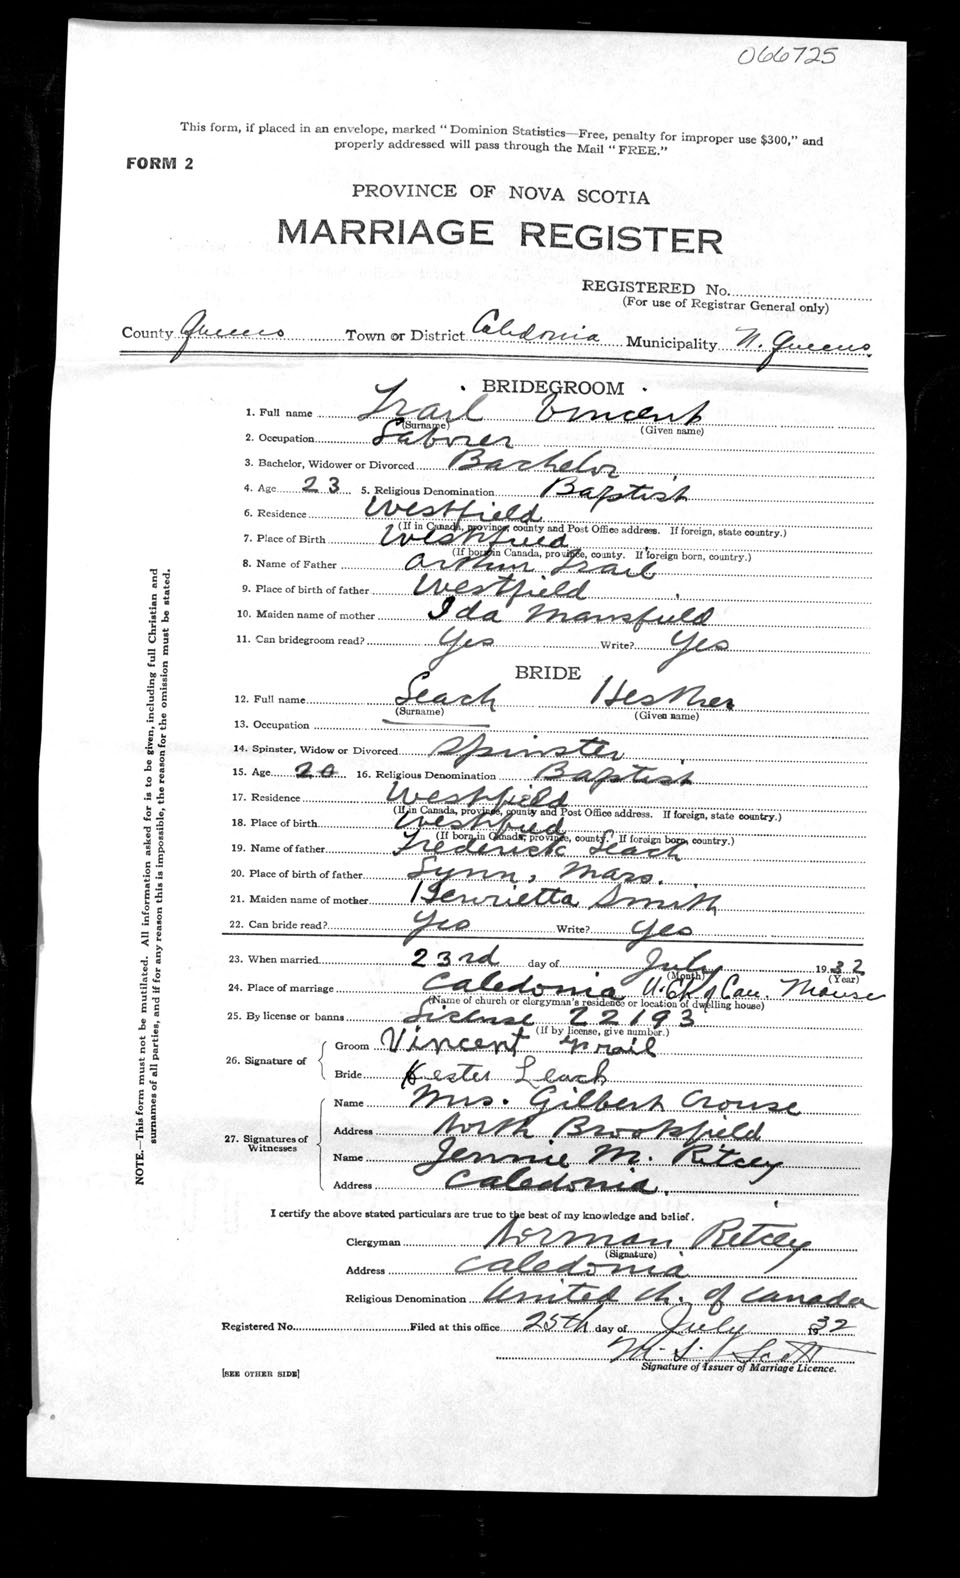 066725
This form, if placed in an envelope, marked "Dominion Statistics—Free, penalty for improper use $300," and
properly addressed will pass through the Mail "FREE."
FORM 2
PROVINCE OF NOVA SCOTIA
MARRIAGE REGISTER
REGISTERED No.
(For use of Registrar General only)
County Queens Town or District Caledonia Municipality N. Queens.
BRIDEGROOM
1. Full name Frail Vincent
(Surname) (Given name)
2. Occupation Laborer
3. Bachelor, Widower or Divorced Bachelor
4. Age 23 5. Religious Denomination Baptist
6. Residence Westfield
(If in Canada, province, county and Post Office address. If foreign, state country.)
7. Place of Birth Westfield
(If born in Canada, province, county. If foreign born, country.)
8. Name of Father Arthur Frail
9. Place of birth of father Westfield
10. Maiden name of mother Ida Mansfield
11. Can bridegroom read? Yes Write? Yes
BRIDE
12. Full name Leach Hesther
(Surname) (Given name)
13. Occupation
14. Spinster, Widow or Divorced Spinster
15. Age 20 16. Religious Denomination Baptist
17. Residence Westfield
(If in Canada, province, county and Post Office address. If foreign, state country.)
18. Place of birth Westfield
(If born in Canada, province, county. If foreign born, country.)
19. Name of father Frederick Leach
20. Place of birth of father Lynn, Mass.
21. Maiden name of mother Henrietta Smith
22. Can bride read? Yes Write? Yes
23. When married 23rd day of July 1932
(Month) (Year)
24. Place of marriage Caledonia U. Ch. of Can. Manse
(Name of church or clergyman's residence or location of dwelling house)
25. By license or banns License 22193
(If by license, give number.)
26. Signature of
Groom Vincent Frail
Bride Hester Leach
27. Signatures of Witnesses
Name Mrs. Gilbert Crouse
Address North Brookfield
Name Jennie M. Ritcey
Address Caledonia.
I certify the above stated particulars are true to the best of my knowledge and belief.
Clergyman Norman Ritcey
(Signature)
Address Caledonia
Religious Denomination United Ch. of Canada
Registered No. Filed at this office 25th day of July 1932
Scott
Signature of Issuer of Marriage Licence.
[SEE OTHER SIDE]
NOTE.—This form must not be mutilated. All information asked for is to be given, including full Christian and
surnames of all parties, and if for any reason this is impossible, the reason for the omission must be stated.